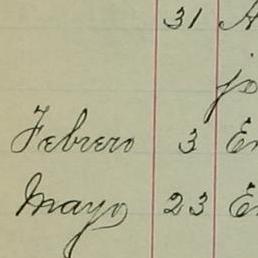 31
Febrero 3 En
Mayo 23 E